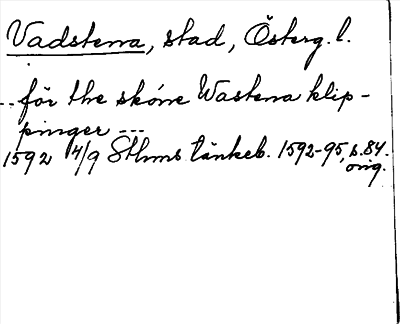 Vadstena, stad, Österg. l.
-- för the sköne Wastena klip-
pinger ---
1592 4/9 Sthms tänkeb. 1592-95, s. 84.
orig.